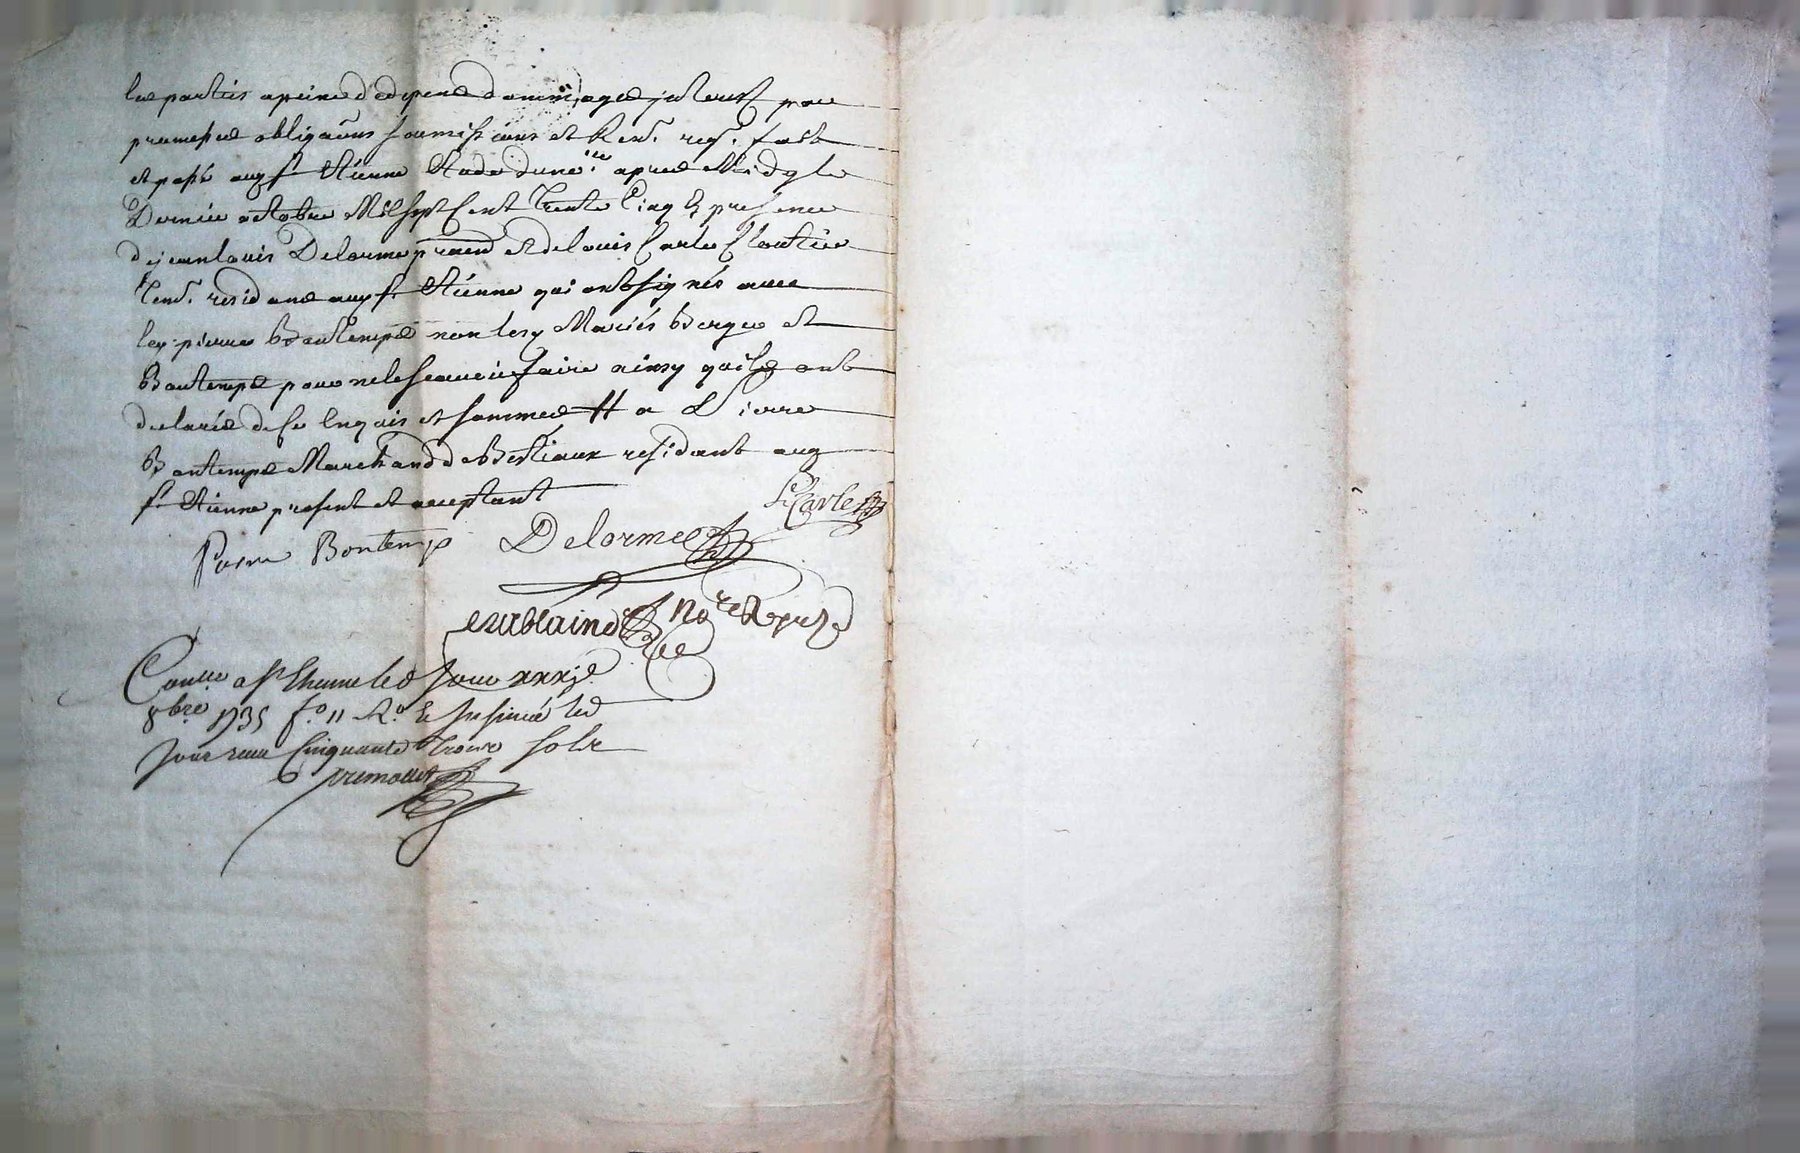 les parties a peine d'edepens dommages interest par
promesses obligaons soumissions et Ren.ⁿ req.ⁿ fait
et passé aud st Etienne Etude du n.re apres Midy le
Dernier octobre Mil sept Cent Trente Cinq En presence
de jean louis Delorme prat et de louis Carle Cloutier
residans aud st Etienne qui ont signés avec
led pierre Bontemps non lesd Mariés et
Bontemps pour ne le scavoir faire ainsy qu'ils ont
declarés de ce Enquis et sommés # a Pierre
Bontemps Marchand de Bestiaux residant aud
st Etienne present et acceptant
L Carle
Pierre Bontemps Delorme
No.re Royal
a st Ethienne le d Jour xxxje
8bre 1735 f.o 11 R.o & Insinué led
Jour receu Cinquante trois sols